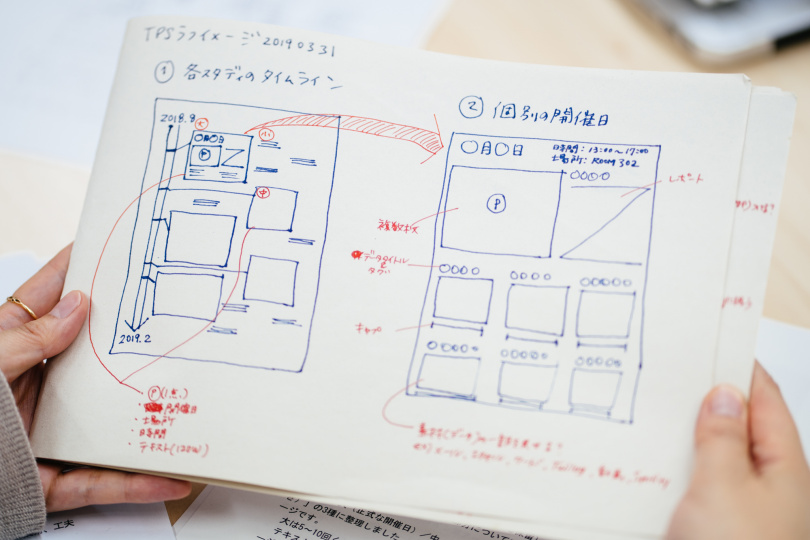 TPSラフイメージ 20190331
① 各スタディのタイムライン
2018.8
大
〇月〇日
小
P
中
2019.2
P(1点)
・開催日
・場所
・日時
・テキスト(120W)
② 個別の開催日
〇月〇日
時間:13:00〜17:00
場所:ROOM 302
〇〇〇〇
P
レポート
複数枚
データタイトル
と
タグ
〇〇〇〇
〇〇〇〇
〇〇〇〇〇
キャプ
〇〇〇〇〇
〇〇〇〇〇
〇〇〇〇
工夫
(正式な開催日)/中
の3種に整理しました
ージです。
大は5〜10回
テキ